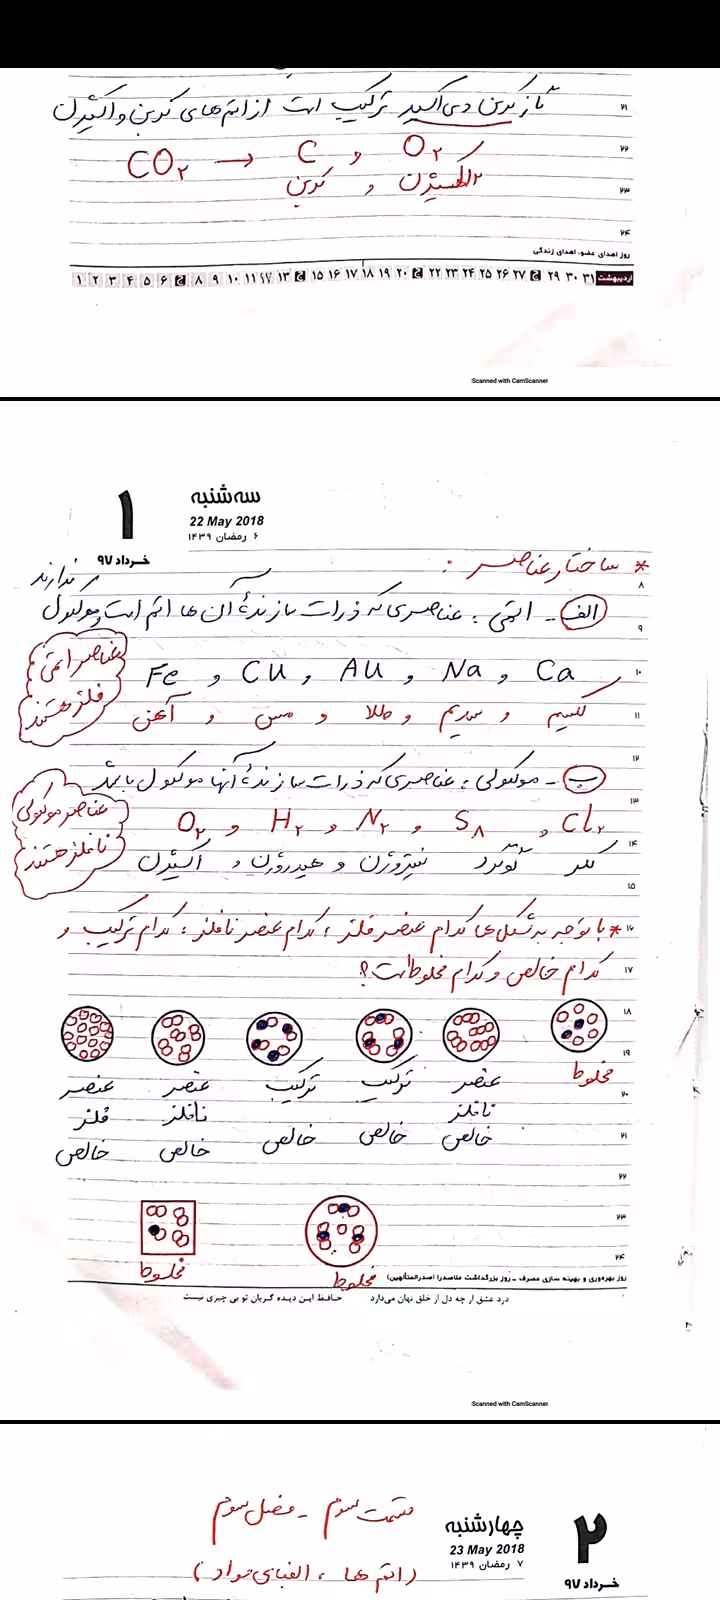 گاز کربن دی اکسید ترکیب است از اتم های کربن و اکسیژن
CO۲ → C و O۲
کربن و ۲ اکسیژن
۲۱
۲۲
۲۳
۲۴
روز اهدای عضو، اهدای زندگی
۱ ۲ ۳ ۴ ۵ ۶ ج ۸ ۹ ۱۰ ۱۱ ۱۲ ۱۳ ج ۱۵ ۱۶ ۱۷ ۱۸ ۱۹ ۲۰ ج ۲۲ ۲۳ ۲۴ ۲۵ ۲۶ ۲۷ ج ۲۹ ۳۰ ۳۱ اردیبهشت
Scanned with CamScanner
۱
خرداد ۹۷
سه‌شنبه
22 May 2018
۶ رمضان ۱۴۳۹
* ساختار عناصر :
الف - اتمی : عناصری که ذرات سازندهٔ آن ها اتم است و مولکول ندارند
Fe و Cu , Au , Na , Ca
کلسیم و سدیم و طلا و مس و آهن
عناصر اتمی فلز هستند
ب - مولکولی : عناصری که ذرات سازندهٔ آنها مولکول باشد
O۲ و H۲ , N۲ , S۸ , Cl۲
کلر گوگرد نیتروژن و هیدروژن و اکسیژن
عناصر مولکولی نافلز هستند
* با توجه به شکل ها کدام عنصر فلز ، کدام عنصر نافلز ، کدام ترکیب و
کدام خالص و کدام مخلوط است؟
مخلوط
عنصر نافلز خالص
ترکیب خالص
ترکیب خالص
عنصر نافلز خالص
عنصر فلز خالص
مخلوط
مخلوط
۸
۹
۱۰
۱۱
۱۲
۱۳
۱۴
۱۵
۱۶
۱۷
۱۸
۱۹
۲۰
۲۱
۲۲
۲۳
۲۴
روز بهره‌وری و بهینه سازی مصرف - روز بزرگداشت ملاصدرا (صدرالمتألهین)
درد عشق ار چه دل از خلق نهان می‌دارد حافظ این دیده گریان تو بی چیزی نیست
Scanned with CamScanner
۲
خرداد ۹۷
چهارشنبه
23 May 2018
۷ رمضان ۱۴۳۹
قسمت سوم - فصل سوم
(اتم ها ، الفبای مواد)